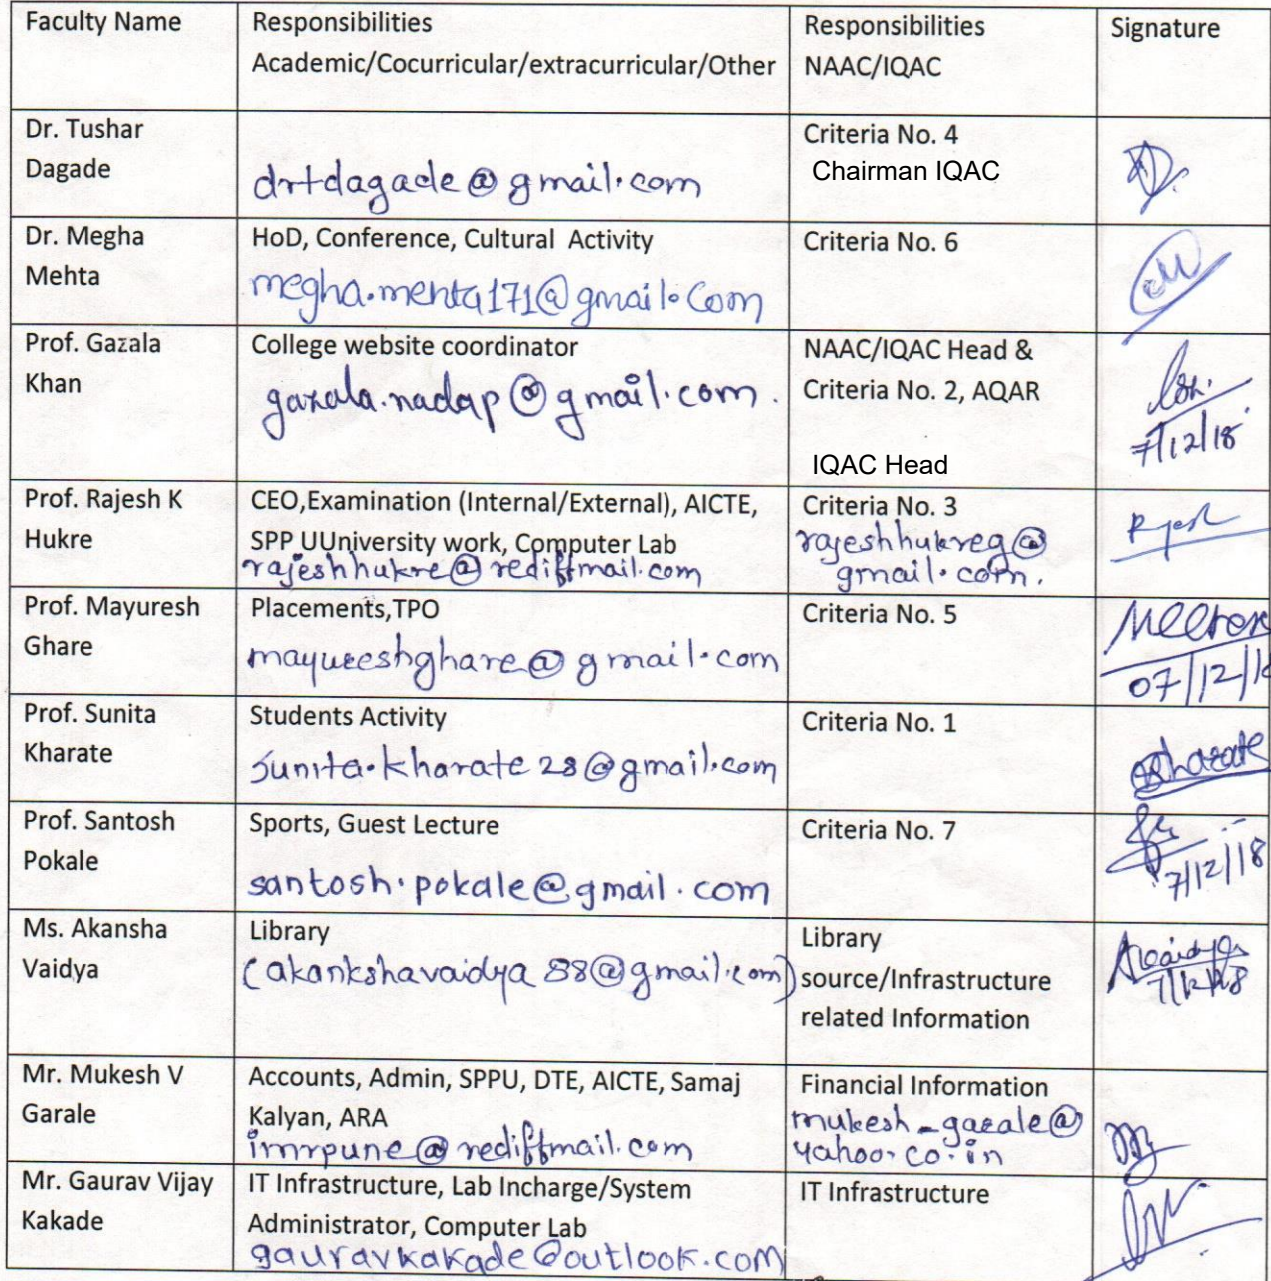 Faculty Name
Responsibilities
Academic/Cocurricular/extracurricular/Other
Responsibilities
NAAC/IQAC
Signature
Dr. Tushar
Dagade
drtdagade@gmail.com
Criteria No. 4
Chairman IQAC
Dr. Megha
Mehta
HoD, Conference, Cultural Activity
megha.mehta171@gmail.com
Criteria No. 6
Prof. Gazala
Khan
College website coordinator
gazala.nadap@gmail.com.
NAAC/IQAC Head &
Criteria No. 2, AQAR
IQAC Head
7/12/18
Prof. Rajesh K
Hukre
CEO,Examination (Internal/External), AICTE,
SPP UUniversity work, Computer Lab
rajeshhukre@rediffmail.com
Criteria No. 3
rajeshhukreg@
gmail.com.
Rjesh
Prof. Mayuresh
Ghare
Placements,TPO
mayureshghare@gmail.com
Criteria No. 5
07/12/18
Prof. Sunita
Kharate
Students Activity
sunita.kharate28@gmail.com
Criteria No. 1
Kharate
Prof. Santosh
Pokale
Sports, Guest Lecture
santosh.pokale@gmail.com
Criteria No. 7
7/12/18
Ms. Akansha
Vaidya
Library
(akankshavaidya88@gmail.com)
Library
source/Infrastructure
related Information
7/12/18
Mr. Mukesh V
Garale
Accounts, Admin, SPPU, DTE, AICTE, Samaj
Kalyan, ARA
imrpune@rediffmail.com
Financial Information
mukesh_garale@
yahoo.co.in
Mr. Gaurav Vijay
Kakade
IT Infrastructure, Lab Incharge/System
Administrator, Computer Lab
gauravkakade@outlook.com
IT Infrastructure